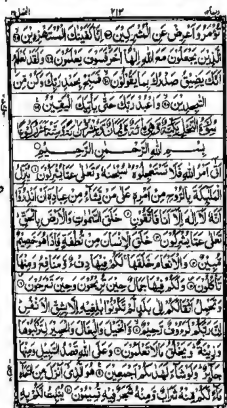 ربما ١٤ ٢١٣ النحل ١٦
تُؤْمَرُ وَأَعْرِضْ عَنِ الْمُشْرِكِينَ إِنَّا كَفَيْنَاكَ الْمُسْتَهْزِءِينَ
الَّذِينَ يَجْعَلُونَ مَعَ اللَّهِ إِلَٰهًا آخَرَ فَسَوْفَ يَعْلَمُونَ وَلَقَدْ نَعْلَمُ
أَنَّكَ يَضِيقُ صَدْرُكَ بِمَا يَقُولُونَ فَسَبِّحْ بِحَمْدِ رَبِّكَ وَكُنْ مِنَ
السَّاجِدِينَ وَاعْبُدْ رَبَّكَ حَتَّىٰ يَأْتِيَكَ الْيَقِينُ
سُورَةُ النَّحْلِ مَكِّيَّةٌ وَهِيَ مِائَةٌ وَثَمَانٌ وَعِشْرُونَ آيَةً
بِسْمِ اللَّهِ الرَّحْمَٰنِ الرَّحِيمِ
أَتَىٰ أَمْرُ اللَّهِ فَلَا تَسْتَعْجِلُوهُ سُبْحَانَهُ وَتَعَالَىٰ عَمَّا يُشْرِكُونَ يُنَزِّلُ
الْمَلَائِكَةَ بِالرُّوحِ مِنْ أَمْرِهِ عَلَىٰ مَنْ يَشَاءُ مِنْ عِبَادِهِ أَنْ أَنْذِرُوا
أَنَّهُ لَا إِلَٰهَ إِلَّا أَنَا فَاتَّقُونِ خَلَقَ السَّمَاوَاتِ وَالْأَرْضَ بِالْحَقِّ
تَعَالَىٰ عَمَّا يُشْرِكُونَ خَلَقَ الْإِنْسَانَ مِنْ نُطْفَةٍ فَإِذَا هُوَ خَصِيمٌ
مُبِينٌ وَالْأَنْعَامَ خَلَقَهَا لَكُمْ فِيهَا دِفْءٌ وَمَنَافِعُ وَمِنْهَا
تَأْكُلُونَ وَلَكُمْ فِيهَا جَمَالٌ حِينَ تُرِيحُونَ وَحِينَ تَسْرَحُونَ
وَتَحْمِلُ أَثْقَالَكُمْ إِلَىٰ بَلَدٍ لَمْ تَكُونُوا بَالِغِيهِ إِلَّا بِشِقِّ الْأَنْفُسِ
إِنَّ رَبَّكُمْ لَرَءُوفٌ رَحِيمٌ وَالْخَيْلَ وَالْبِغَالَ وَالْحَمِيرَ لِتَرْكَبُوهَا
وَزِينَةً وَيَخْلُقُ مَا لَا تَعْلَمُونَ وَعَلَى اللَّهِ قَصْدُ السَّبِيلِ وَمِنْهَا
جَائِرٌ وَلَوْ شَاءَ لَهَدَاكُمْ أَجْمَعِينَ هُوَ الَّذِي أَنْزَلَ مِنَ السَّمَاءِ
مَاءً لَكُمْ مِنْهُ شَرَابٌ وَمِنْهُ شَجَرٌ فِيهِ تُسِيمُونَ يُنْبِتُ لَكُمْ بِهِ